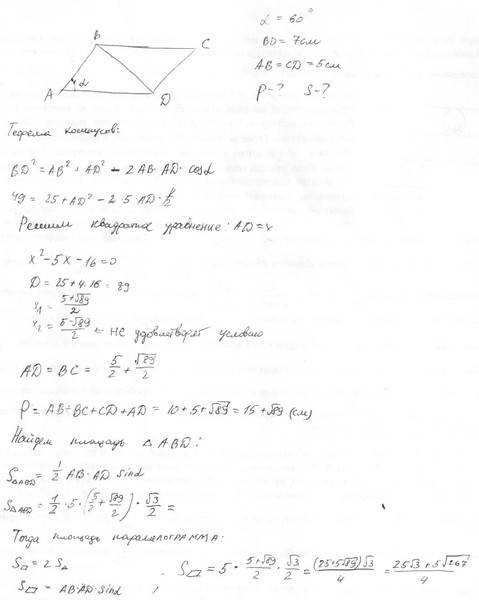 α = 60°
BD = 7см
AB = CD = 5см
P-? S-?
B
C
A
α
D
Теорема косинусов:
BD² = AB² + AD² - 2 AB·AD·cosα
49 = 25 + AD² - 2·5·AD·1/2
Решим квадратное уравнение: AD = x
x² - 5x - 16 = 0
D = 25 + 4·16 = 89
x₁ = (5+√89)/2
x₂ = (5-√89)/2 ← не удовлетворяет условию
AD = BC = 5/2 + √89/2
P = AB+BC+CD+AD = 10+5+√89 = 15+√89 (см)
Найдем площадь △ABD:
S△ABD = 1/2 AB·AD sinα
S△ABD = 1/2·5·(5/2 + √89/2)·√3/2 =
Тогда площадь параллелограмма:
S▱ = 2S△
S▱ = AB·AD·sinα
S▱ = 5·(5+√89)/2·√3/2 = (25+5√89)√3/4 = (25√3+5√267)/4